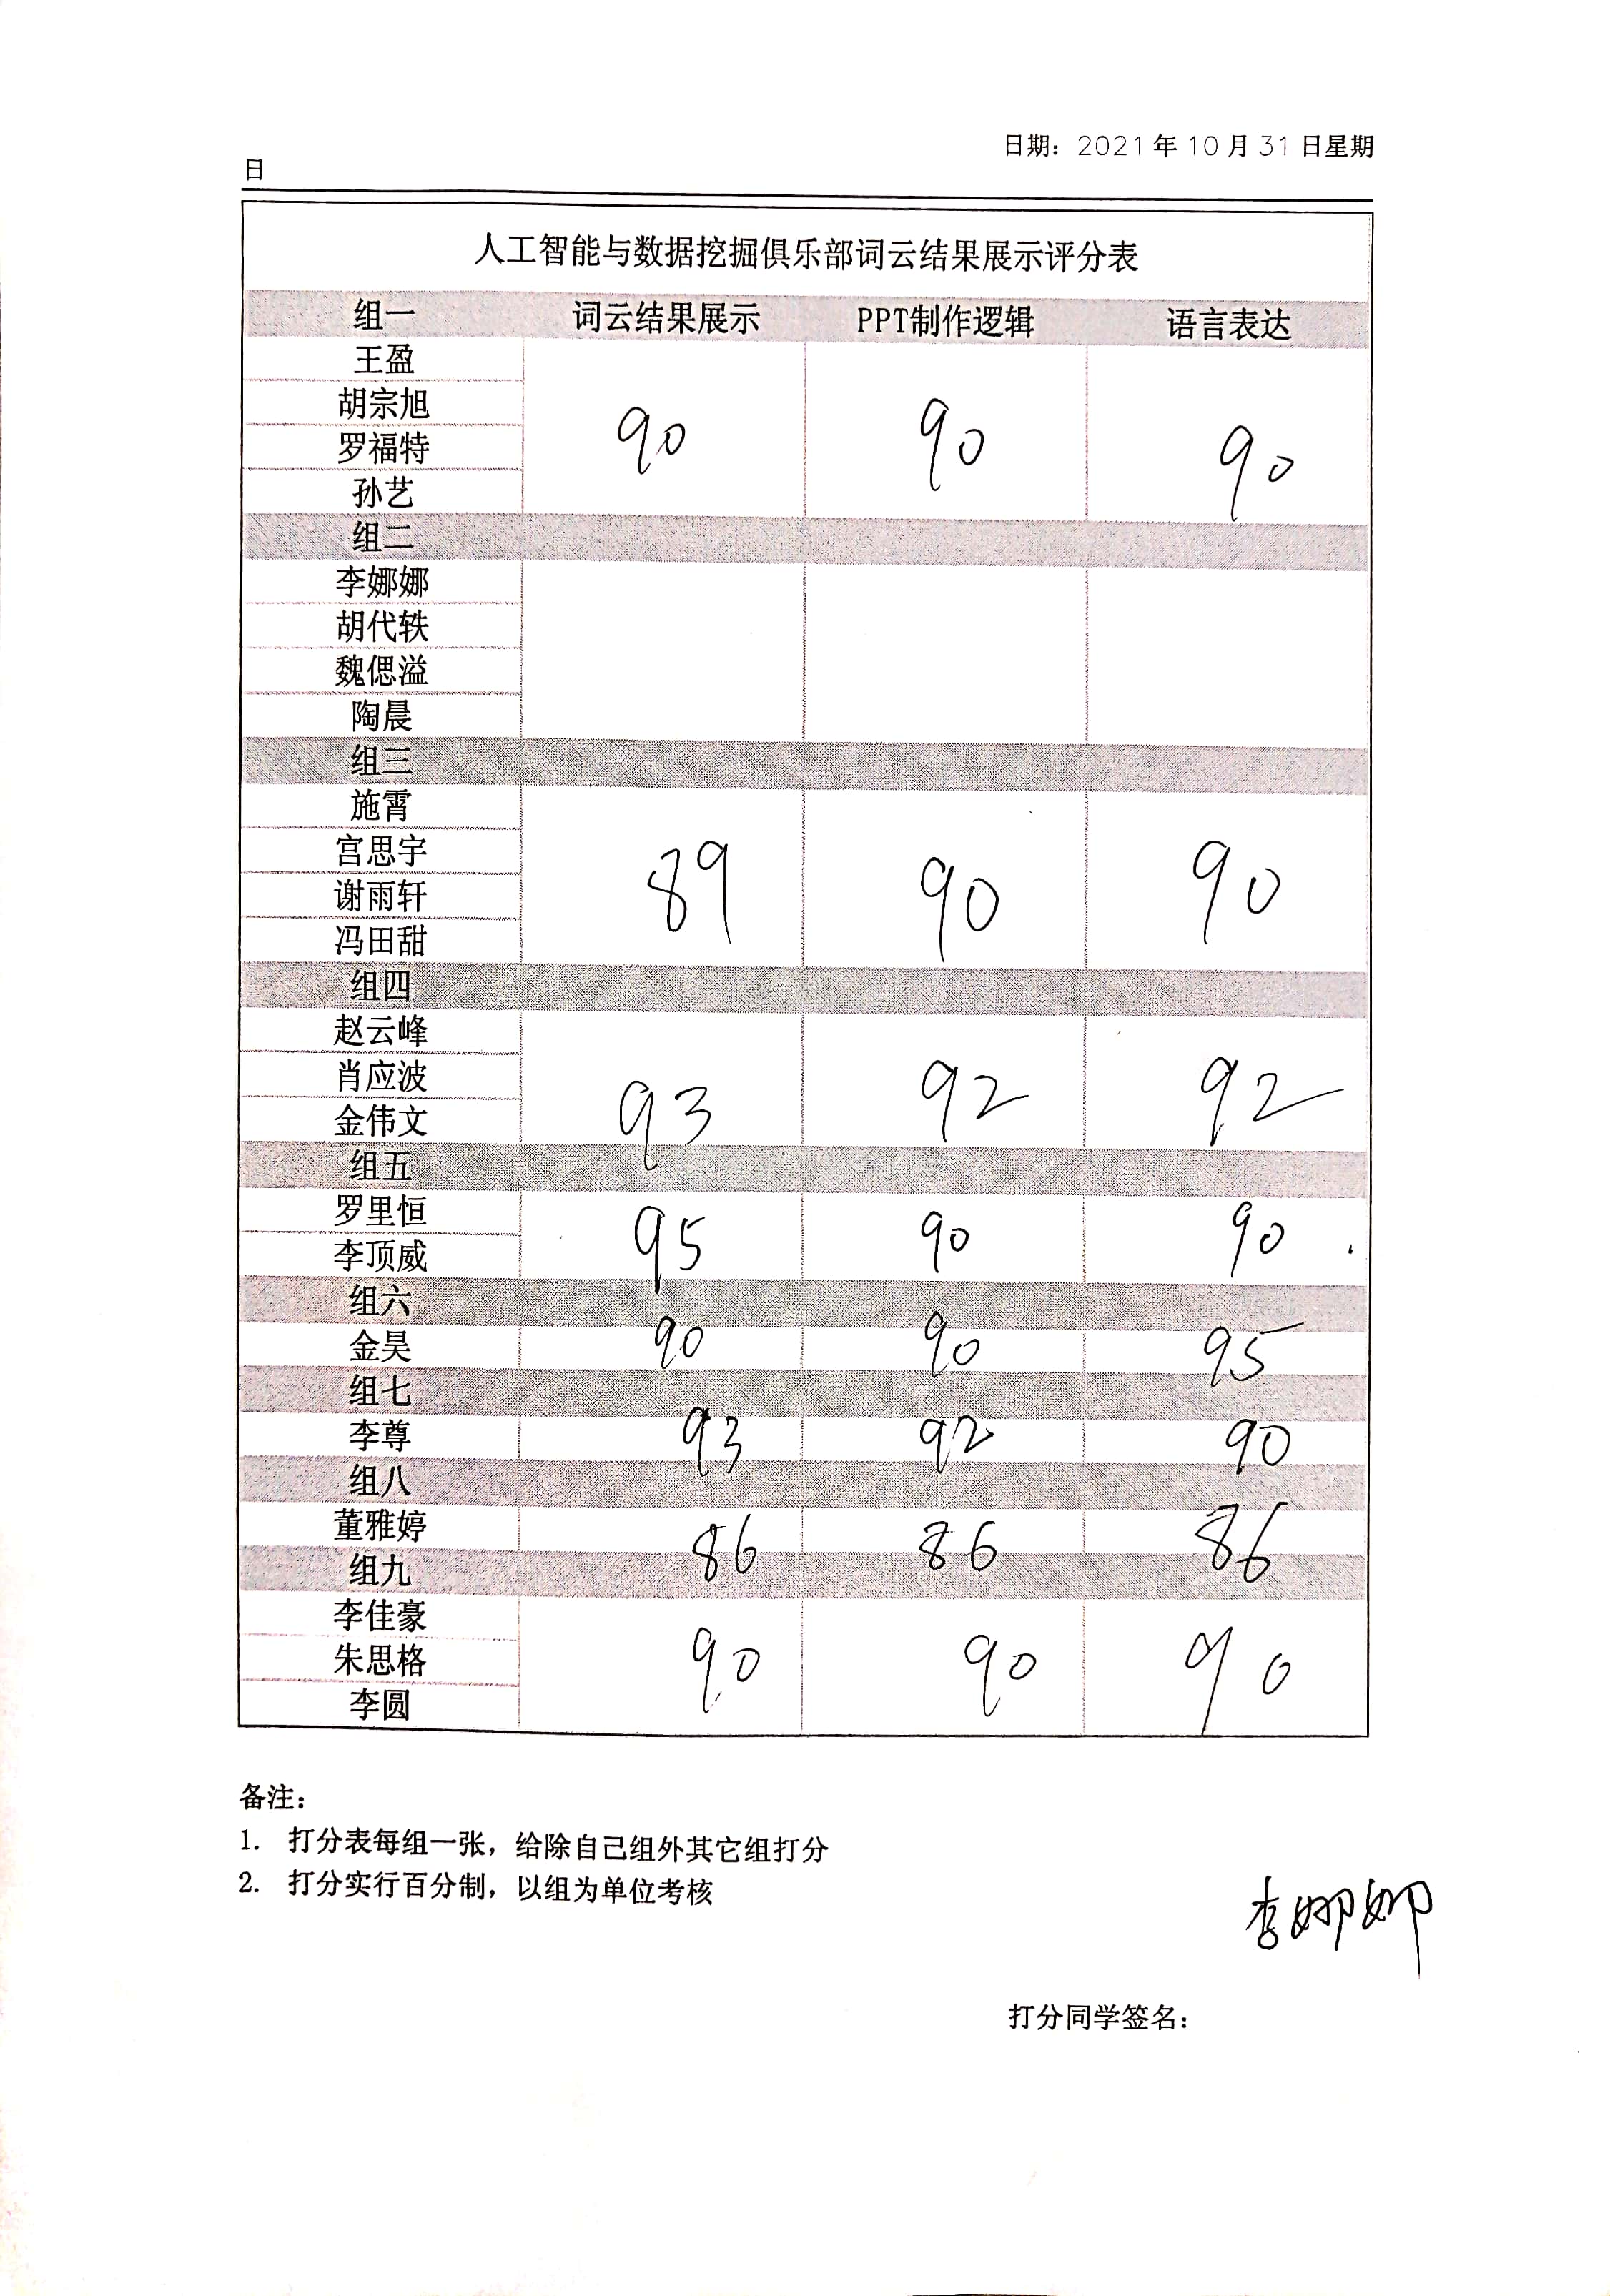 日期：2021年10月31日星期
日
人工智能与数据挖掘俱乐部词云结果展示评分表
组一 词云结果展示 PPT制作逻辑 语言表达
王盈
胡宗旭
罗福特
孙艺
90 90 90
组二
李娜娜
胡代轶
魏偲溢
陶晨
组三
施霄
宫思宇
谢雨轩
冯田甜
89 90 90
组四
赵云峰
肖应波
金伟文
93 92 92
组五
罗里恒
李顶威
95 90 90
组六
金昊 90 90 95
组七
李尊 93 92 90
组八
董雅婷 86 86 86
组九
李佳豪
朱思格
李圆
90 90 90
备注：
1. 打分表每组一张，给除自己组外其它组打分
2. 打分实行百分制，以组为单位考核
李娜娜
打分同学签名：